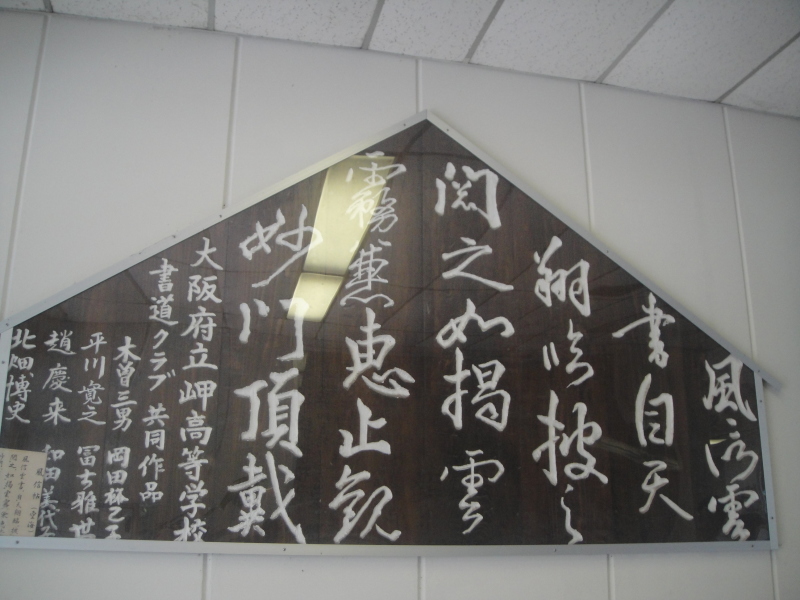 風信雲
書自天
翔臨披之
閲之如揭雲
霧兼恵止観
妙門頂戴
大阪府立岬高等学校
書道クラブ 共同作品
木曽三男 岡田
平川寛之 冨士雅世
趙慶来 和田美代
北畑博史
風信帖